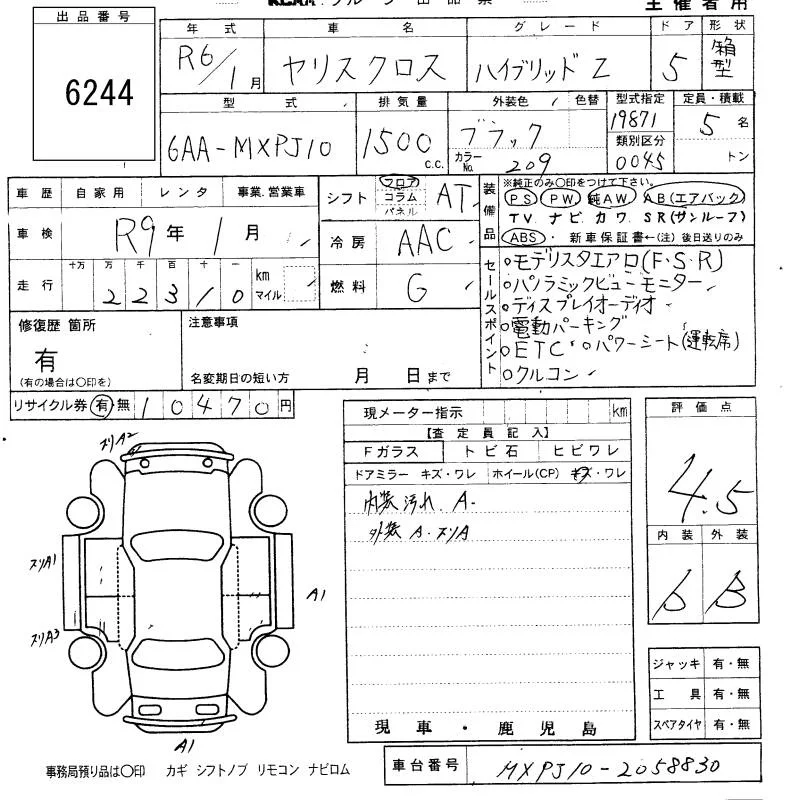 出品番号
6244
主催者用
年式 車名 グレード ドア 形状
R6/1月 ヤリスクロス ハイブリッド Z 5 箱型
型式 排気量 外装色 色替 型式指定 定員・積載
6AA-MXPJ10 1500 c.c. ブラック 19871 5 名
カラーNo. 209 類別区分 0045 トン
車歴 自家用 レンタ 事業.営業車
車検 R9年 1月
走行 十万 万 千 百 十 一 km マイル
22310
シフト フロア コラム パネル AT
冷房 AAC
燃料 G
装備品 ※純正のみ○印をつけて下さい。
PS PW 純AW AB(エアバック)
TV. ナビ. カワ. SR(サンルーフ)
ABS ・ 新車保証書←(注)後日送りのみ
セールスポイント
○モデリスタエアロ(F・S・R)
○パノラミックビューモニター
○ディスプレイオーディオ
○電動パーキング
○ETC ○パワーシート(運転席)
○クルコン
修復歴 箇所
有
(有の場合は○印を)
注意事項
名変期日の短い方 月 日まで
リサイクル券 有 無 10470円
現メーター指示 km
【査定員記入】
Fガラス トビ石 ヒビワレ
ドアミラー キズ・ワレ ホイール(CP) キズ・ワレ
内装 汚れ A-
外装 A. スリA
現車・鹿児島
評価点
4.5
内装 外装
b B
ジャッキ 有・無
工具 有・無
スペアタイヤ 有・無
スリA2
スリA1
A1
スリA3
A1
事務局預り品は○印 カギ シフトノブ リモコン ナビロム
車台番号 MXPJ10-2058830